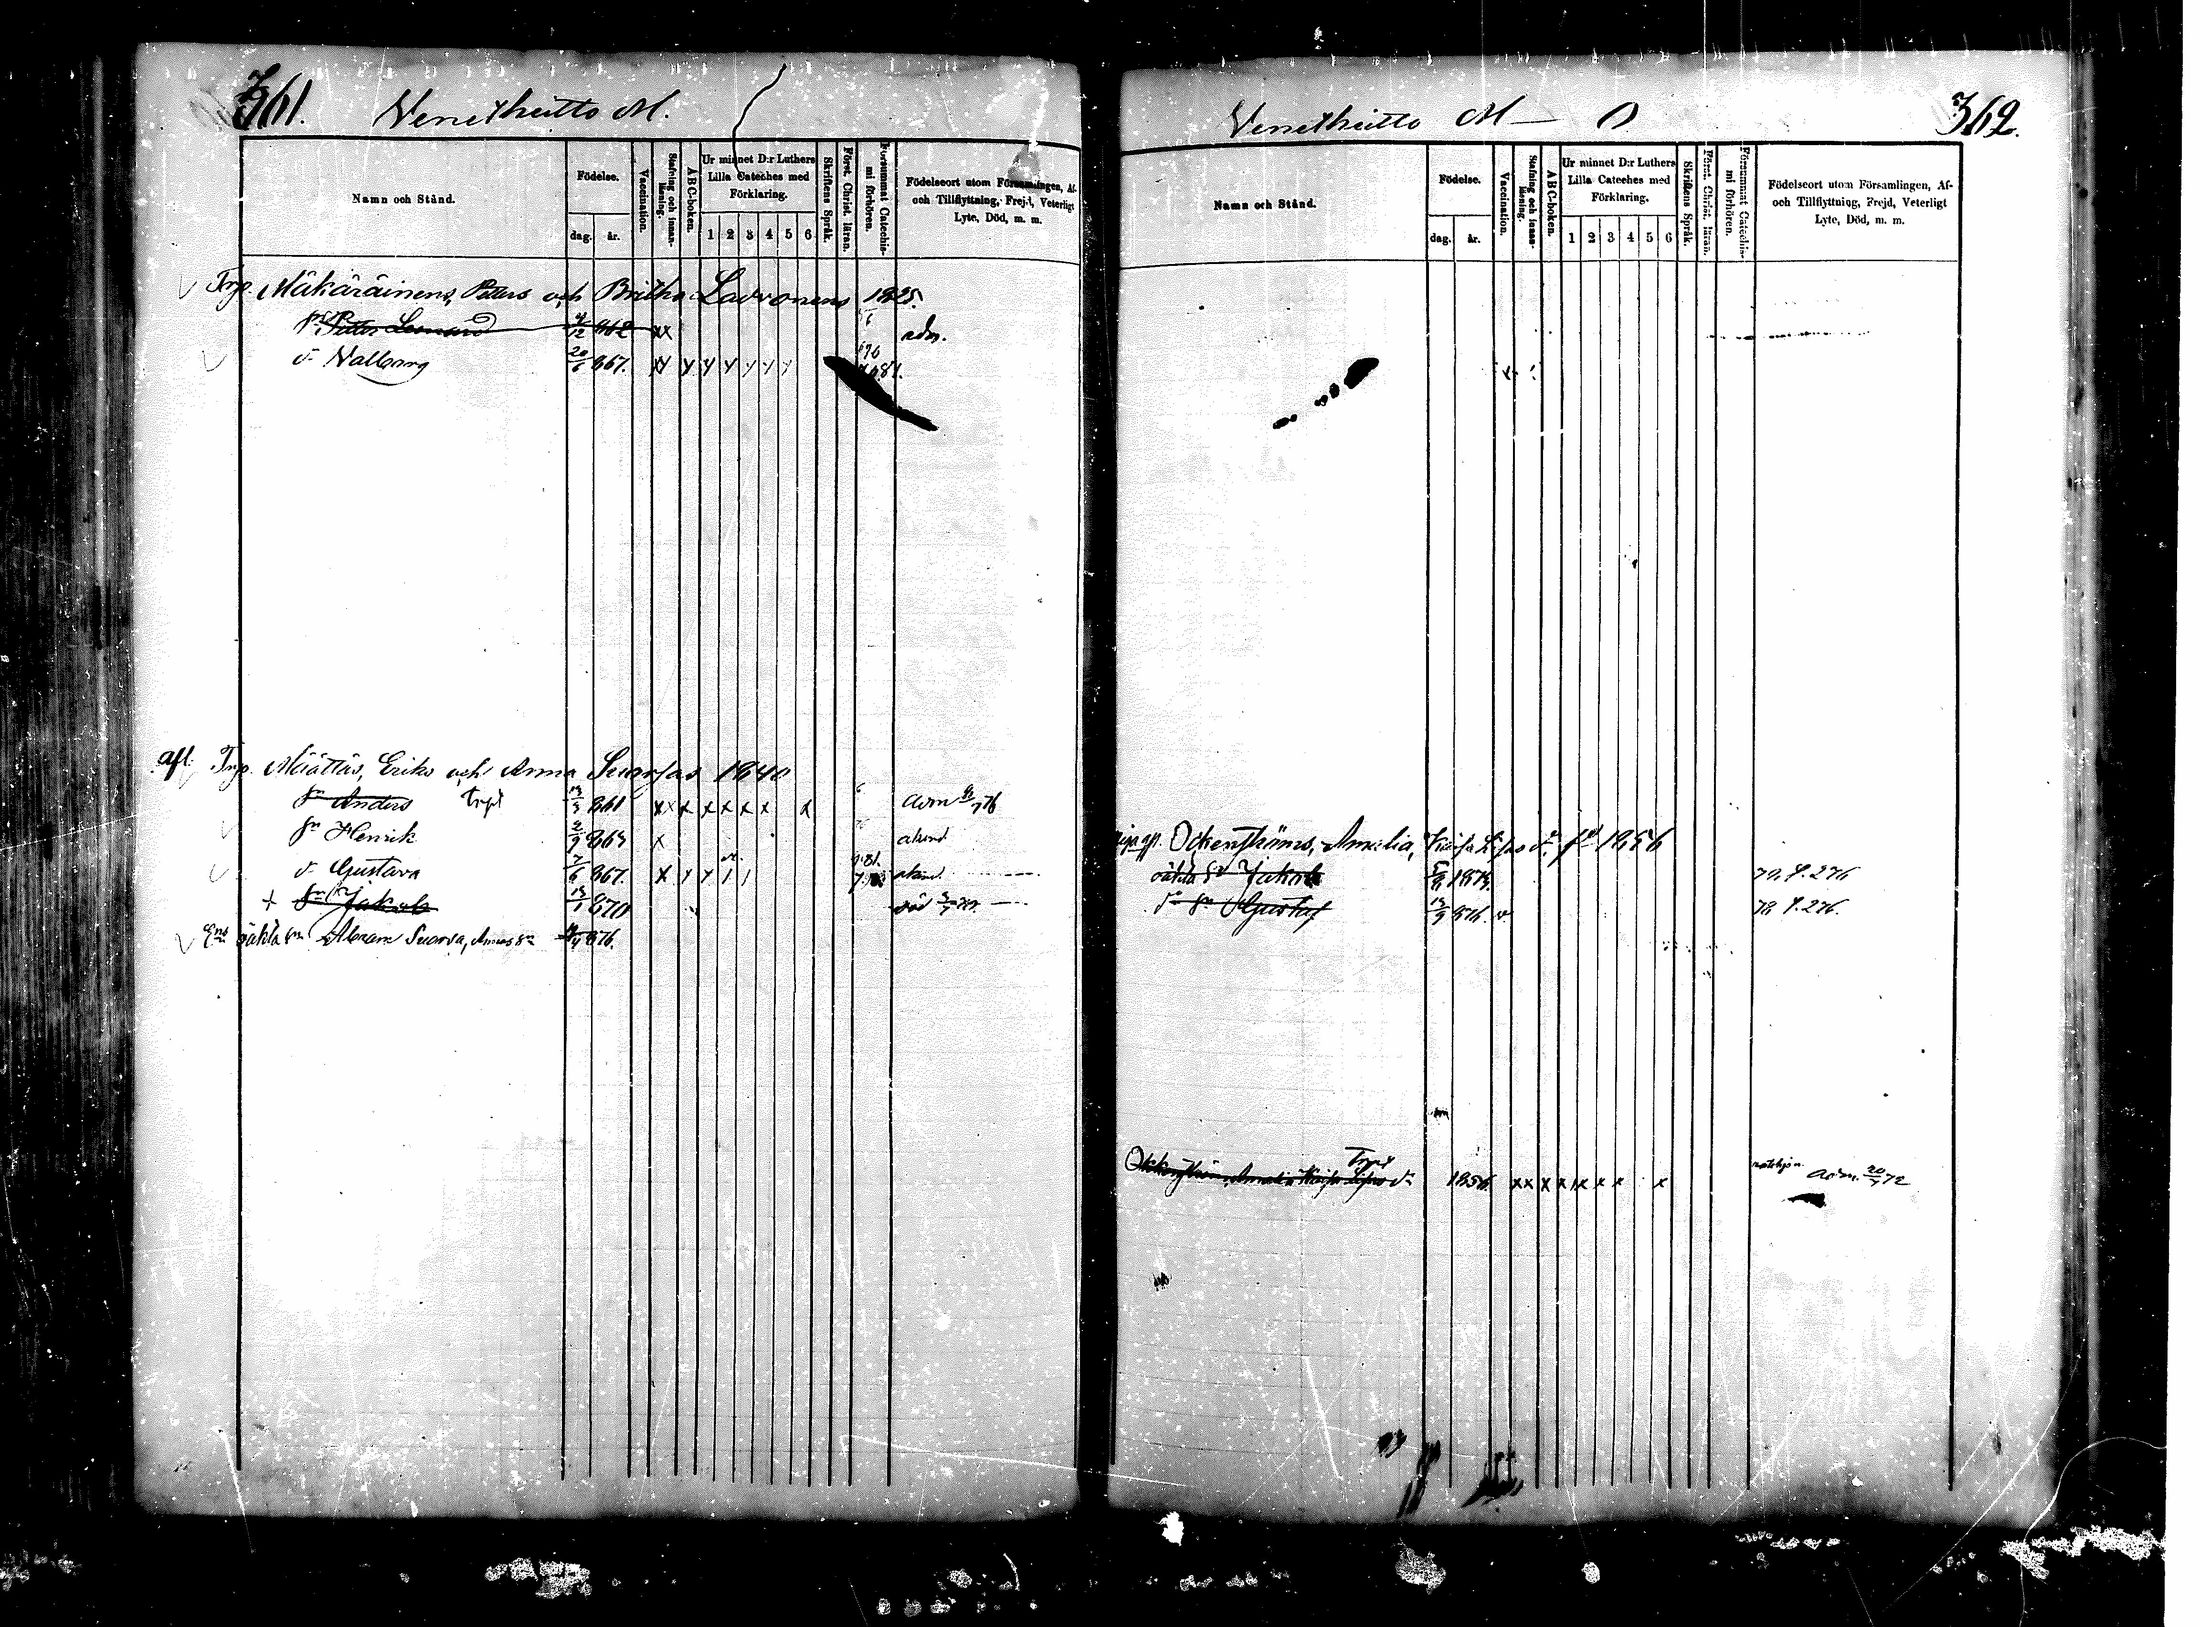 361. Venetheitto M.
Namn och Stånd.
Födelse.
dag. år.
Vaccination.
Stafning och innan-läsning.
A B C-boken.
Ur minnet D:r Luthers Lilla Cateches med Förklaring.
1 2 3 4 5 6
Skriftens Språk.
Först. Christ. läran.
Försummat Catechis-mi förhören.
Födelseort utom Församlingen, Af- och Tillflyttning, Frejd, Veterligt Lyte, Död, m. m.
Torp. Mäkäräinens, Petters och Britha Lavvonens 1825.
sn Petter Leonard 12 862 x x adm.
d. Walborg 20/6 867. x y y y y y y y 81.
afl. Torp. Määttäs, Eriks och Anna Suorsas 1840
sn Anders Trpt 861 x x x x x x x x adm 76
sn Henrik 2/9 863 x
d. Gustava 7/6 867. x y y
+ sn Jakob 13/1 870 död
Ens oäkta sn Abram Suorsa, Annas sn 876.
Venetheitto M — O 362.
Namn och Stånd.
Födelse.
dag. år.
Vaccination.
Stafning och innan-läsning.
A B C-boken.
Ur minnet D:r Luthers Lilla Cateches med Förklaring.
1 2 3 4 5 6
Skriftens Språk.
Först. Christ. läran.
Försummat Catechis-mi förhören.
Födelseort utom Församlingen, Af- och Tillflyttning, Frejd, Veterligt Lyte, Död, m. m.
Ockenströms, Amalia, Kaisa Lisas d. 1856
oäkta sn Jakob 1873. 79. S. 276
d:o sn Gustaf 13/9 876. v. 78 S. 276.
Trpt
Ockenström, Amalia Kaisa Lisas d. 1856 x x x x x x x x adm. 72